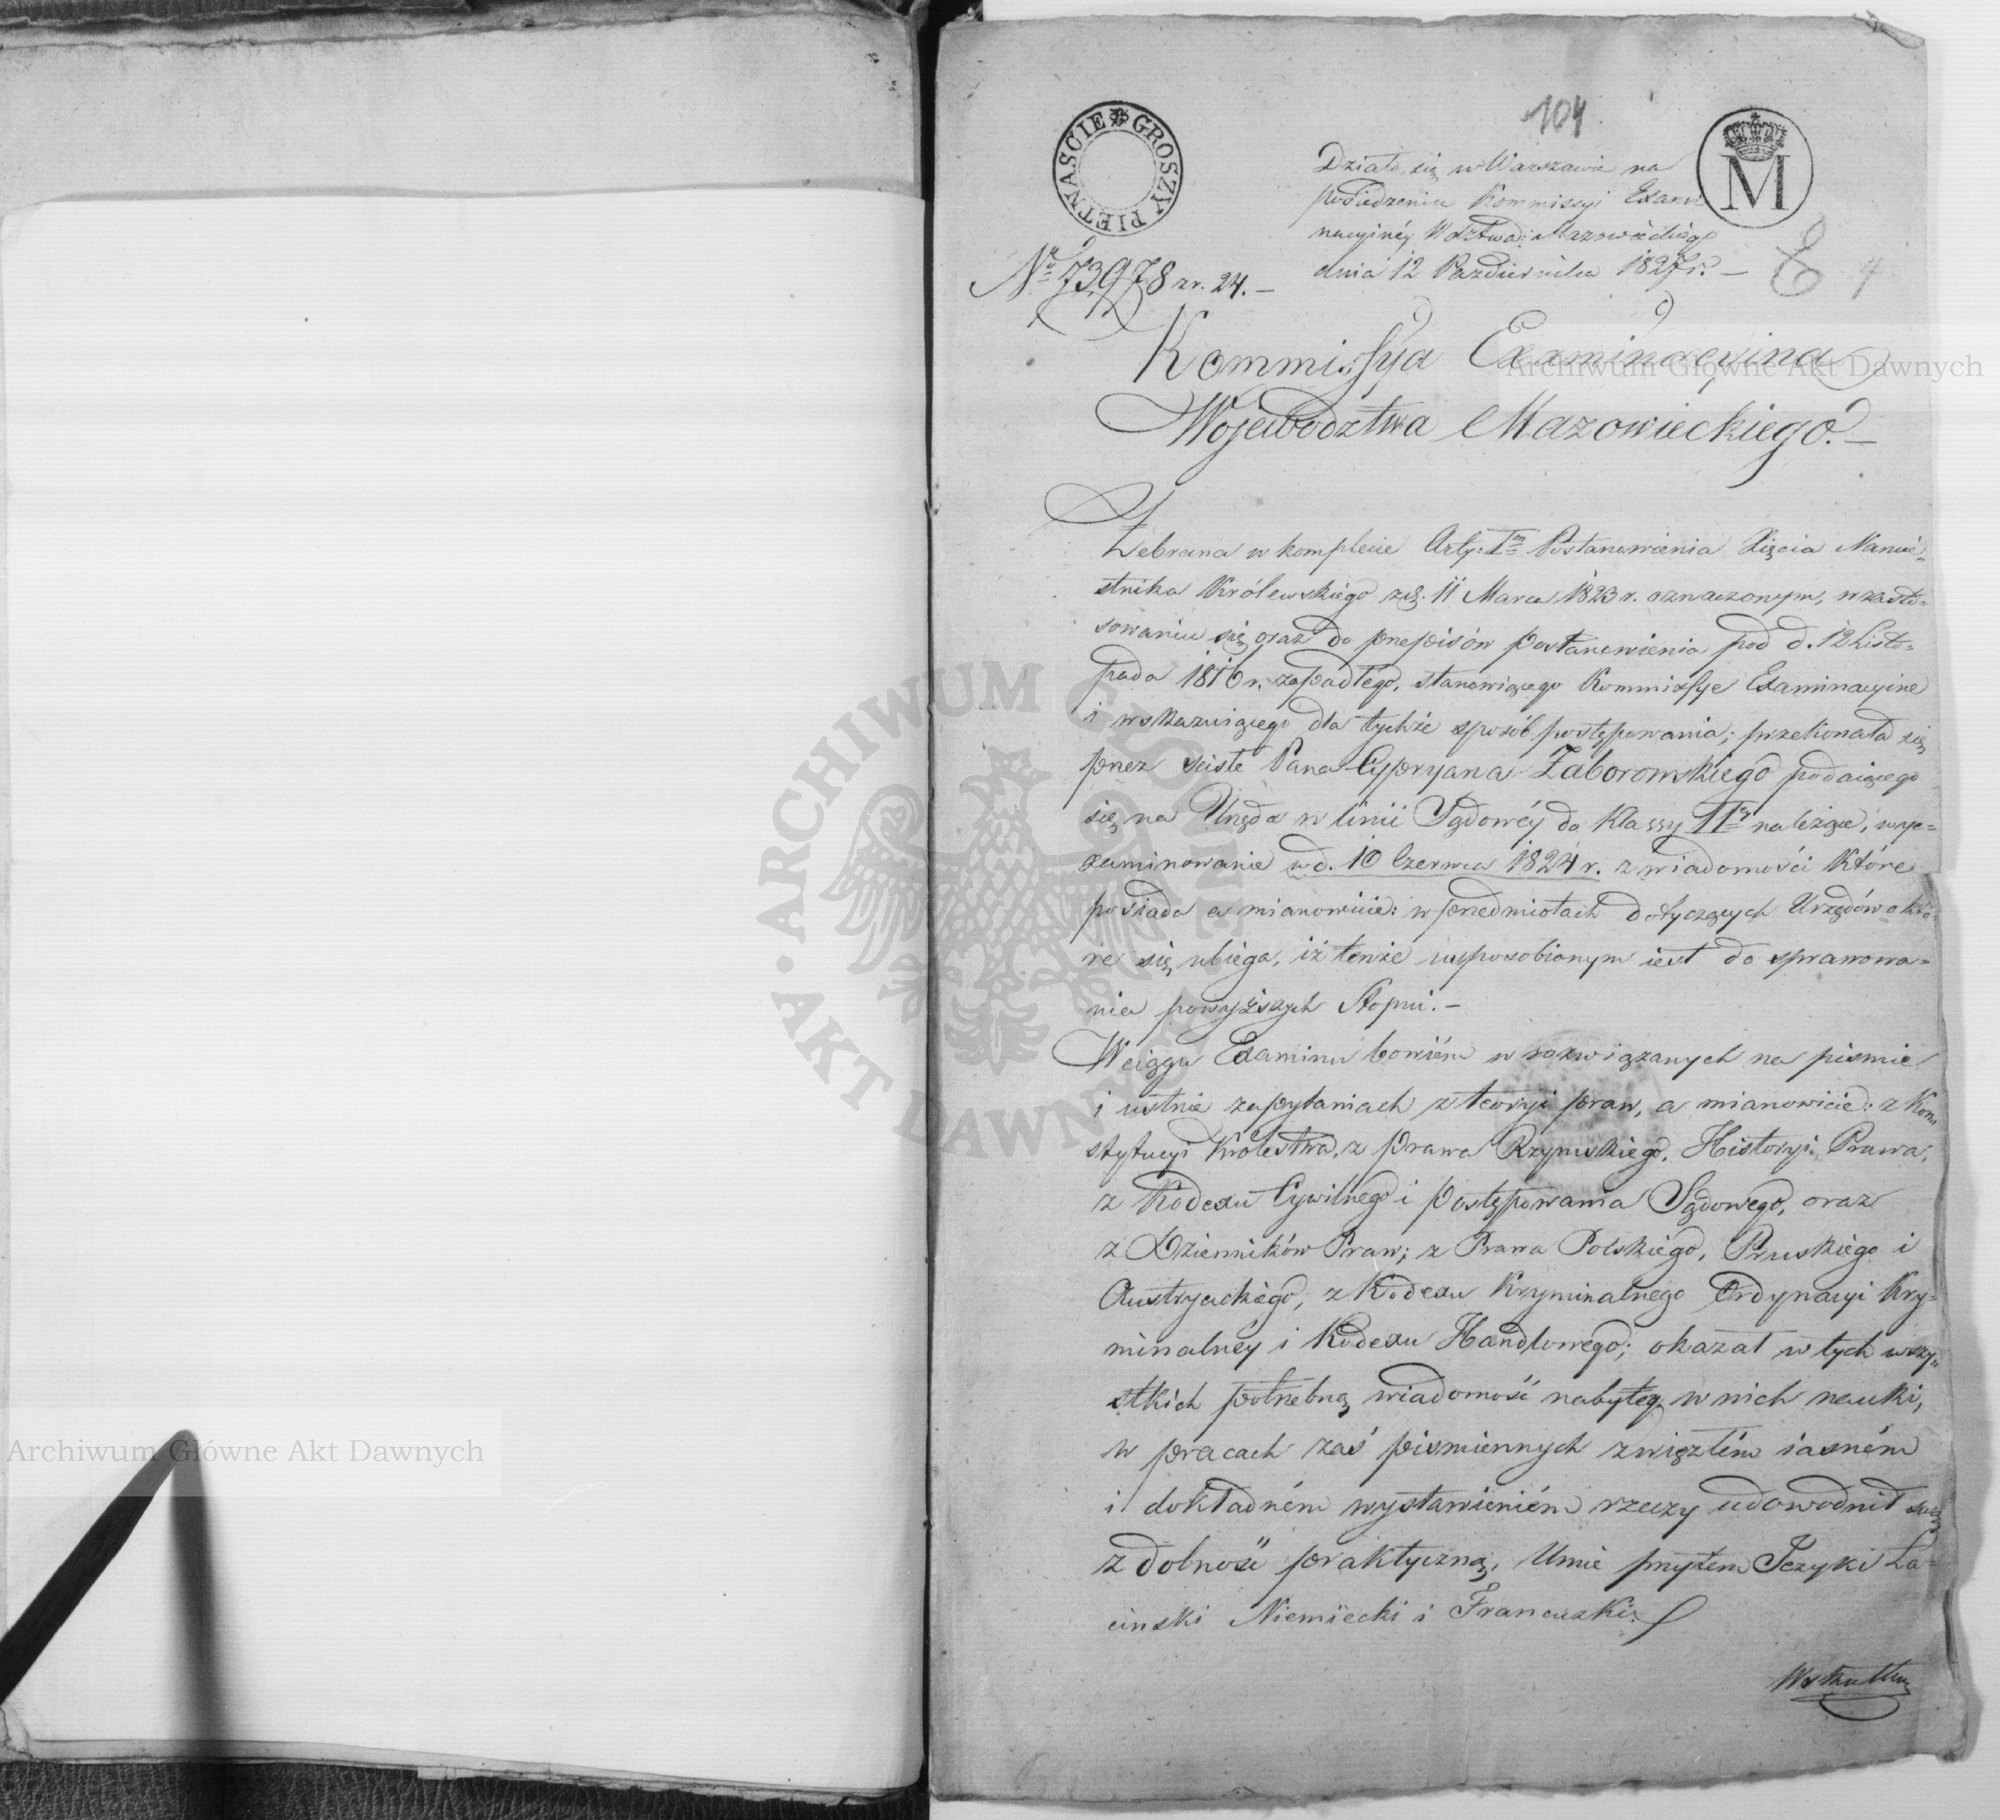 PIĘTNAŚCIE GROSZY
M
104
Działo się w Warszawie na
posiedzeniu Kommissyi Exami-
nacyinéy Wdztwa: Mazowieckiego
dnia 12 Października 1827 r. –
4
No 73978 zr. 24. –
Kommissya Examinacyina
Województwa Mazowieckiego. –
Zebrana w komplecie Arty: Im Postanowienia Xięcia Namie-
stnika Królewskiego zd. 11 Marca 1823 r. oznaczonym, w zasto-
sowaniu się oraz do przepisów postanowienia pod d. 12 Listo-
pada 1816 r. zapadłego, stanowiącego Kommissye Examinacyine
i wskazuiącego dla tychże sposób postępowania; przekonała się
przez ściste Pana Cypryana Zaborowskiego podaiącego
się na Urzęda w linii Sądowéy do Klassy IIéy należące, wye-
xaminowanie w d. 10 Czerwca 1824 r. z wiadomości które
posiada a mianowicie: w przedmiotach dotyczących Urzędów o któ-
re się ubiega, iż tenże usposobionym iest do sprawowa-
nia powyższych Stopni. –
W ciągu Examinu bowiém w rozwiązanych na pismie
i ustnie zapytaniach z teoryi praw, a mianowicie: z Kon-
stytucyi Królestwa, z prawa Rzymskiego, Historyi Prawa,
z Kodexu Cywilnego i Postępowania Sądowego, oraz
z Dzienników Praw; z Prawa Polskiego, Pruskiego i
Austryackiego; z Kodexu Kryminalnego Ordynacyi Kry-
minalnéy i Kodexu Handlowego; okazał w tych wszy-
stkich potrzebną wiadomość nabytéy w nich nauki,
w pracach zaś pismiennych zwięztém iasném
i dokładném wystawieniém rzeczy udowodnił swą
zdolność praktyczną, Umie przytem Jezyki Ła-
ciński Niemiecki i Francuzki.
W skutku
ARCHIWUM GŁÓWNE AKT DAWNYCH
Archiwum Główne Akt Dawnych
Archiwum Główne Akt Dawnych